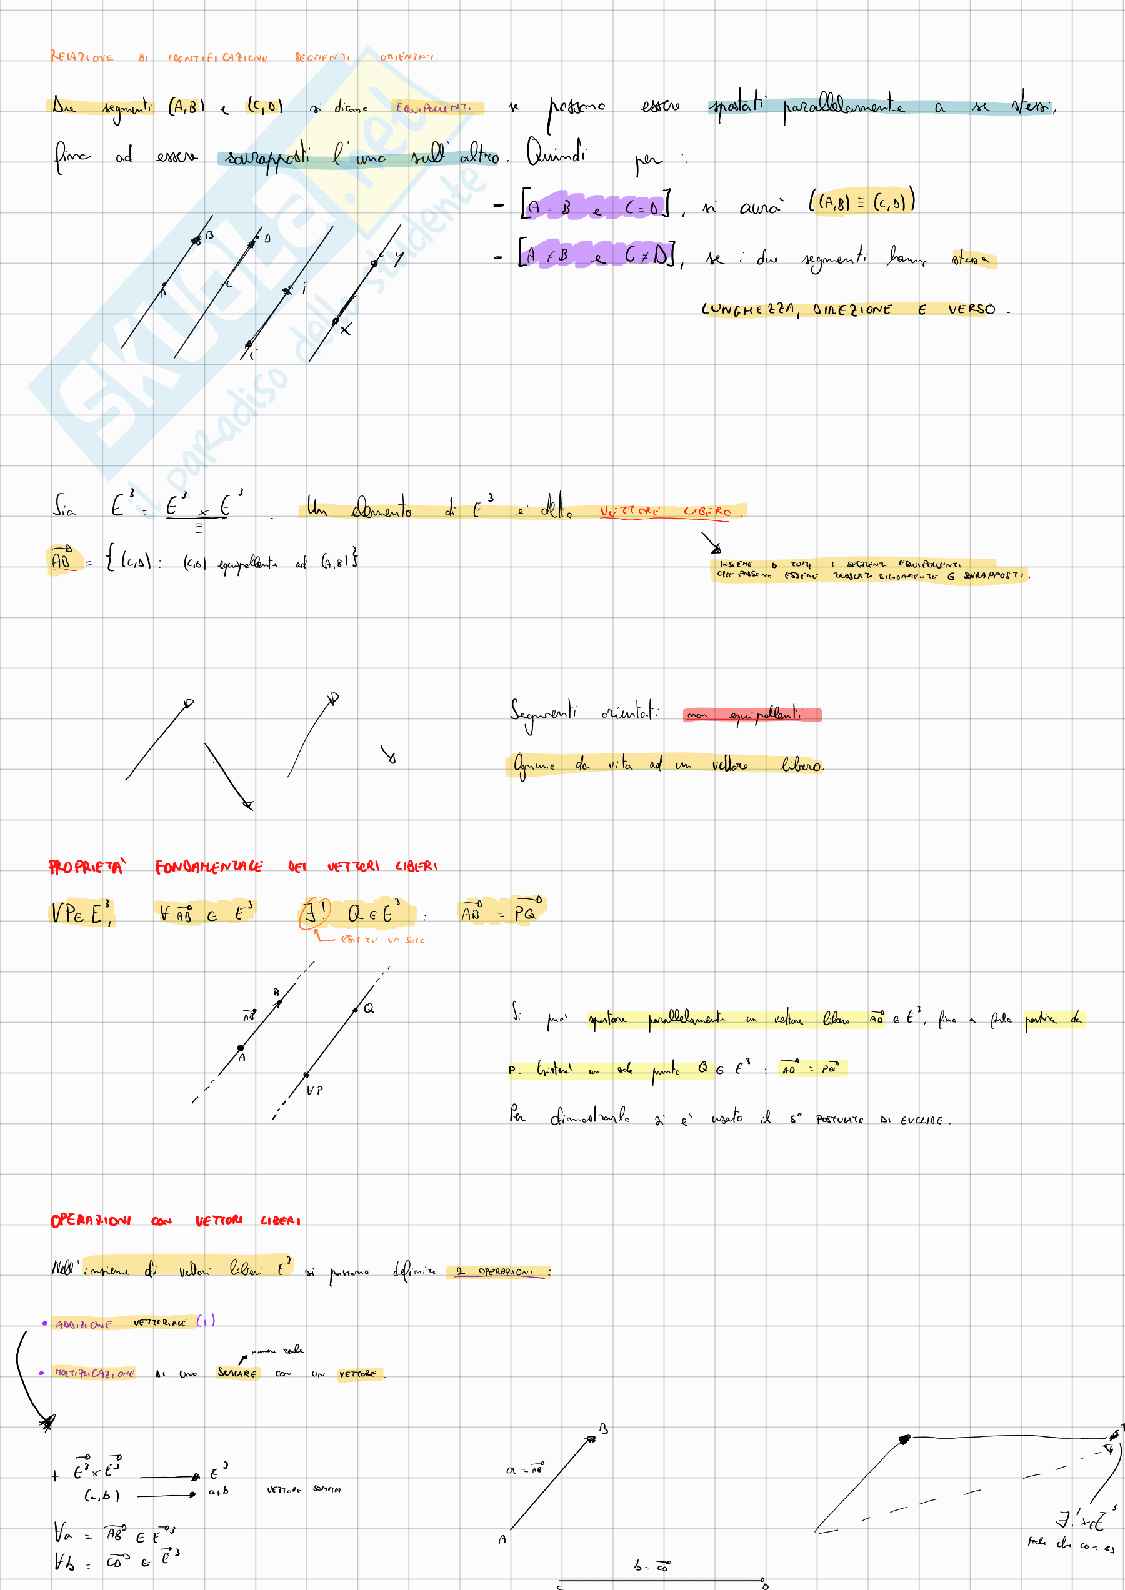 RELAZIONE DI IDENTIFICAZIONE SEGMENTI ORIENTATI
Due segmenti (A,B) e (C,D) si dicono EQUIPOLLENTI se possono essere spostati parallelamente a se stessi,
fino ad essere sovrapposti l'uno sull'altro. Quindi per:
- [A = B e C = D], si avrà ((A,B) ≡ (C,D))
- [A ≠ B e C ≠ D], se i due segmenti hanno stessa
LUNGHEZZA, DIREZIONE E VERSO.
B D i y
A C i X
SKUOLA.net
il paradiso dello studente
Sia E³ = E³ × E³ / ≡ . Un elemento di E³ è detto VETTORE LIBERO.
AB = {(C,D) : (C,D) equipollente ad (A,B)}
INSIEME DI TUTTI I SEGMENTI EQUIPOLLENTI
CHE POSSONO ESSERE TRASLATI E SOVRAPPOSTI.
Segmenti orientati non equipollenti.
Ognuno da vita ad un vettore libero.
PROPRIETÀ FONDAMENTALE DEI VETTORI LIBERI
∀P∈E³, ∀AB ∈ E³ ∃! Q∈E³ : AB = PQ
ESISTE UN SOLO
B AB A Q ∀P
Si può spostare parallelamente un vettore libero AB ∈ E³, fino a farlo partire da
P. Esisterà un solo punto Q ∈ E³ : AB = PQ
Per dimostrarlo si è usato il 5° POSTULATO DI EUCLIDE.
OPERAZIONI CON VETTORI LIBERI
Nell'insieme di vettori liberi E³ si possono definire 2 OPERAZIONI:
• ADDIZIONE VETTORIALE (+)
numero reale
• MOLTIPLICAZIONE DI UNO SCALARE CON UN VETTORE.
+ E³ × E³ → E³
(a,b) → a+b VETTORE SOMMA
∀a = AB ∈ E³
∀b = CD ∈ E³
B
a = AB
A
b = CD
C D
∃! x∈E³
tale che